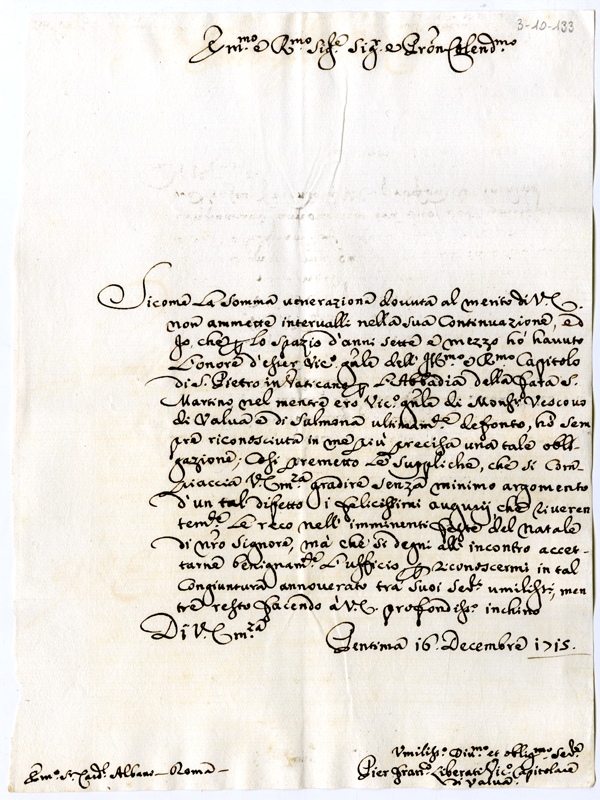 3-10-133
Em.mo e R.mo Sig.re Sig.r e Pron Colend.mo
Sicome la somma venerazione dovuta al merito di V. E.
non ammette intervalli nella sua Continuazione, ed
Io, che p lo spazio d'anni sette e mezzo hò havuto
l'onore d'esser Vic.o gñle dell' Ill.mo e R.mo Capitolo
di S. Pietro in Vaticano p l'Abbadia della Fara S.
Martino nel mentre ero Vic.o gñle di Monsig.r Vescovo
di Valva e di Sulmona ultimam.te defonto, hò sem
pre riconosciuta in me più precisa una tale obli-
gazione; Così premetto le suppliche, che si com
piaccia V. Em.za gradire senza minimo argomento
d'un tal difetto i felicissimi augurij che riveren
tem.te le reco nell' imminenti feste del Natale
di nr̃o Signore, mà che si degni all' incontro accet-
tarne benignam.te l'ufficio p riconoscermi in tal
congiuntura annoverato tra suoi Ser.i umiliss.i, men
tre resto facendo à V. E. profondiss.o inchino
Di V. Em.za
Pentima 16. Decembre 1715.
Umiliss.o Div.mo et oblig.mo Ser.re
Pier Fran.o Liberati Vic.o Capitolare
di Valva
Em.o S. Card. Albano - Roma -